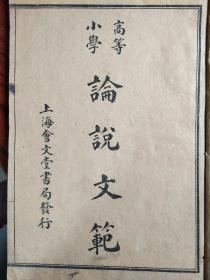 高等
小學
論說文範
上海會文堂書局發行